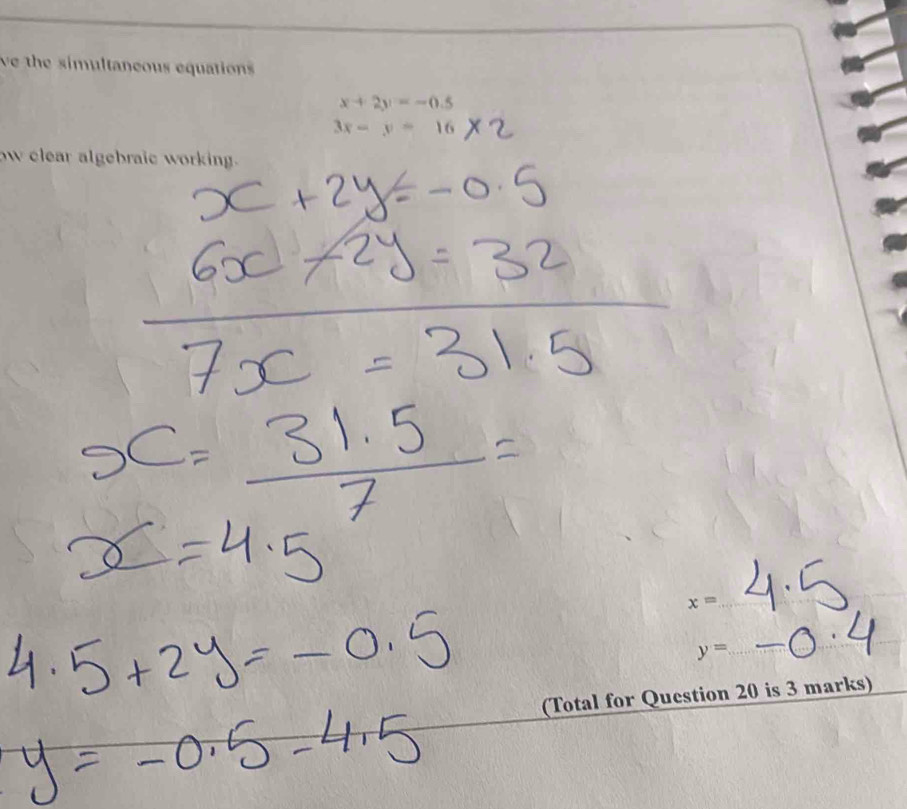 ve the simultaneous equations
x + 2y = -0.5
3x - y = 16 × 2
ow clear algebraic working.
x + 2y = -0.5
6x - 2y = 32
7x = 31.5
x = 31.5 / 7 =
x = 4.5
x = 4.5
4.5 + 2y = -0.5
y = -0.4
(Total for Question 20 is 3 marks)
y = -0.5 - 4.5